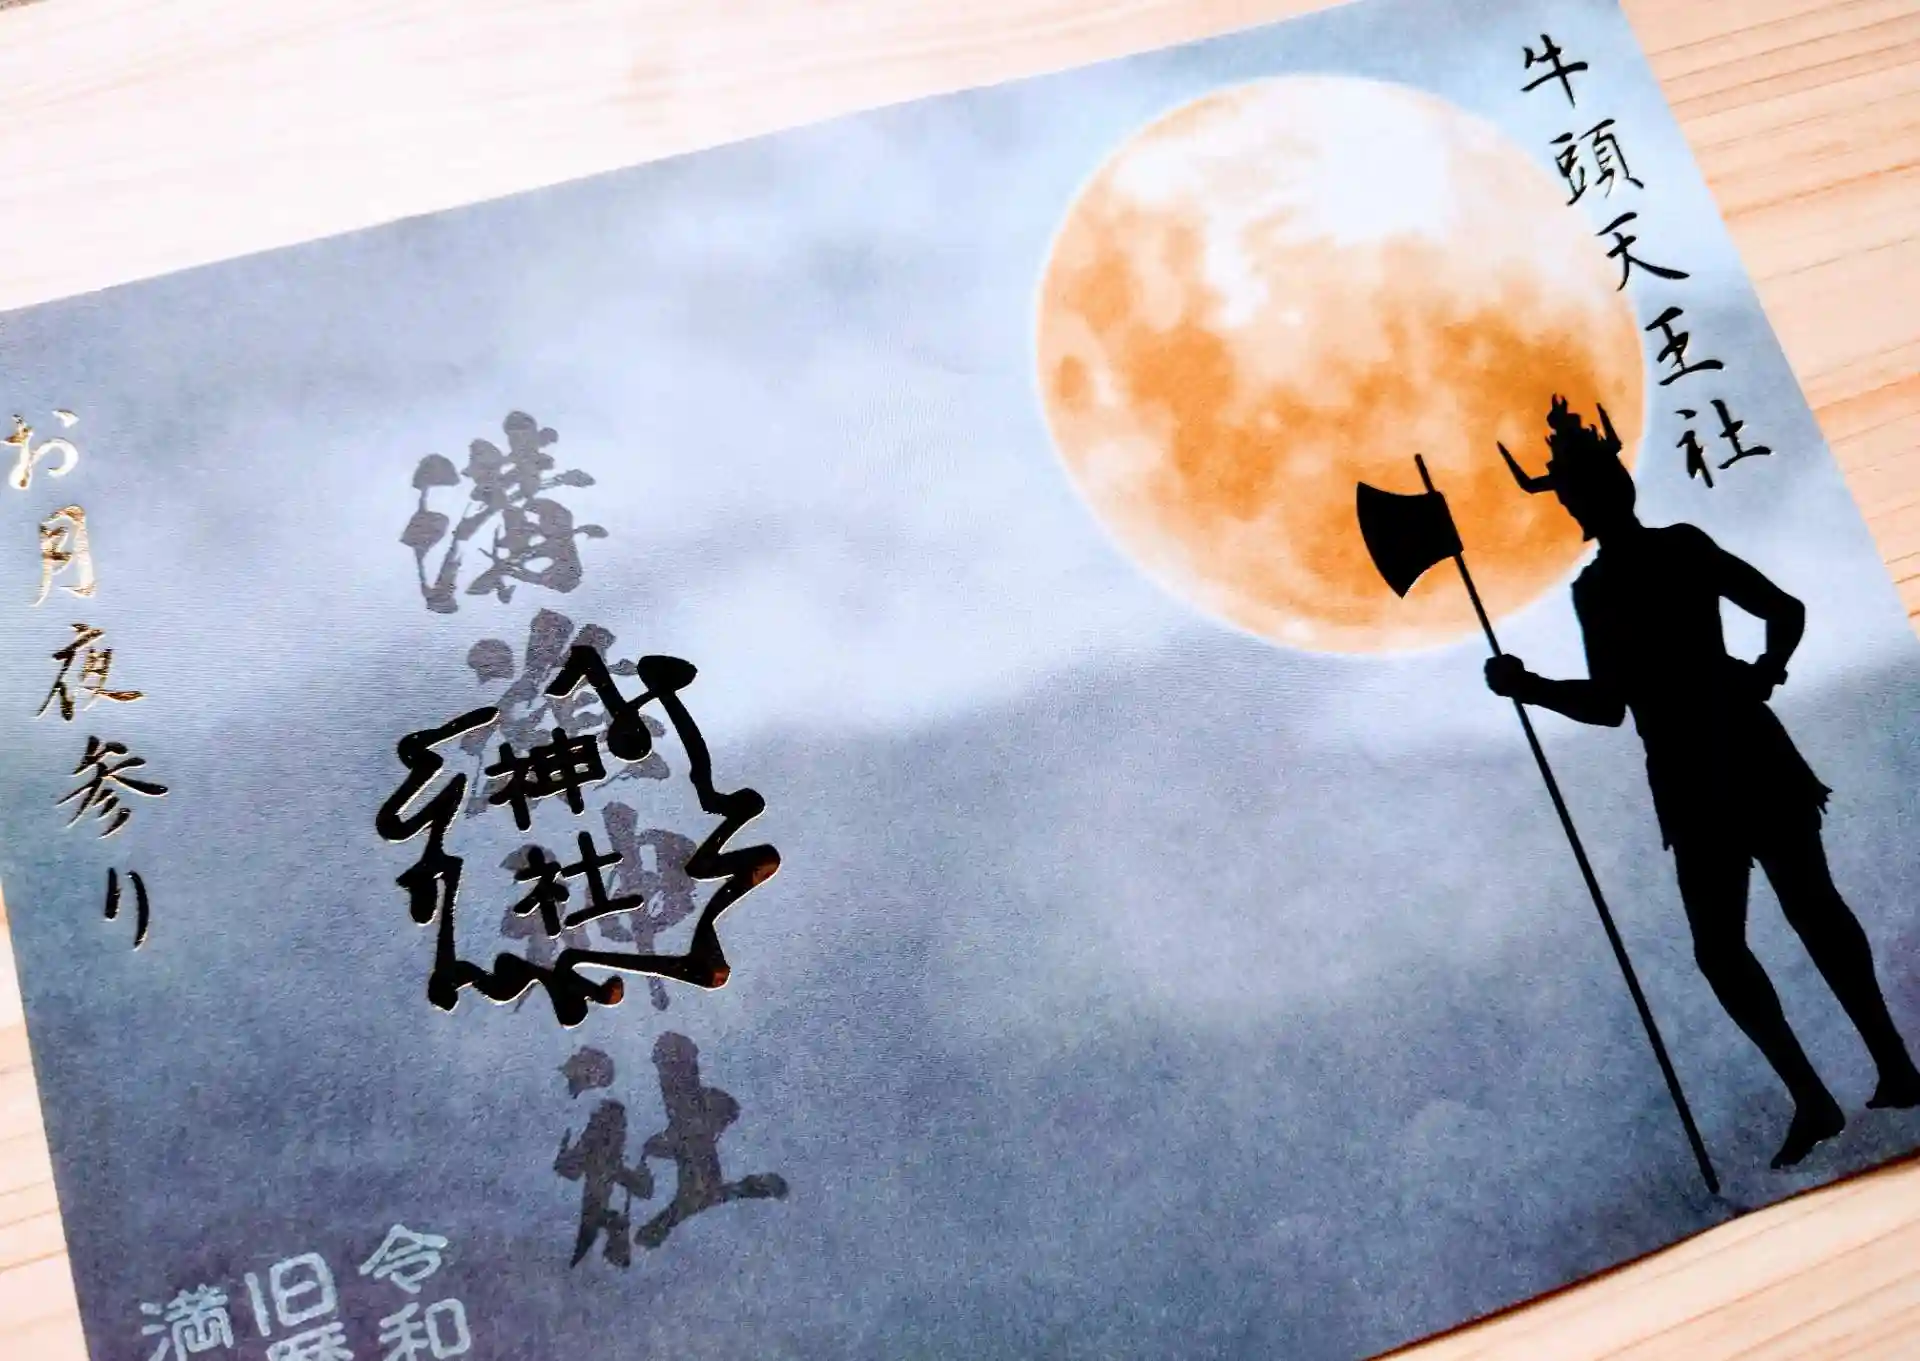 牛頭天王社
溝旗神社
神社
お月夜参り
令和
旧暦
満